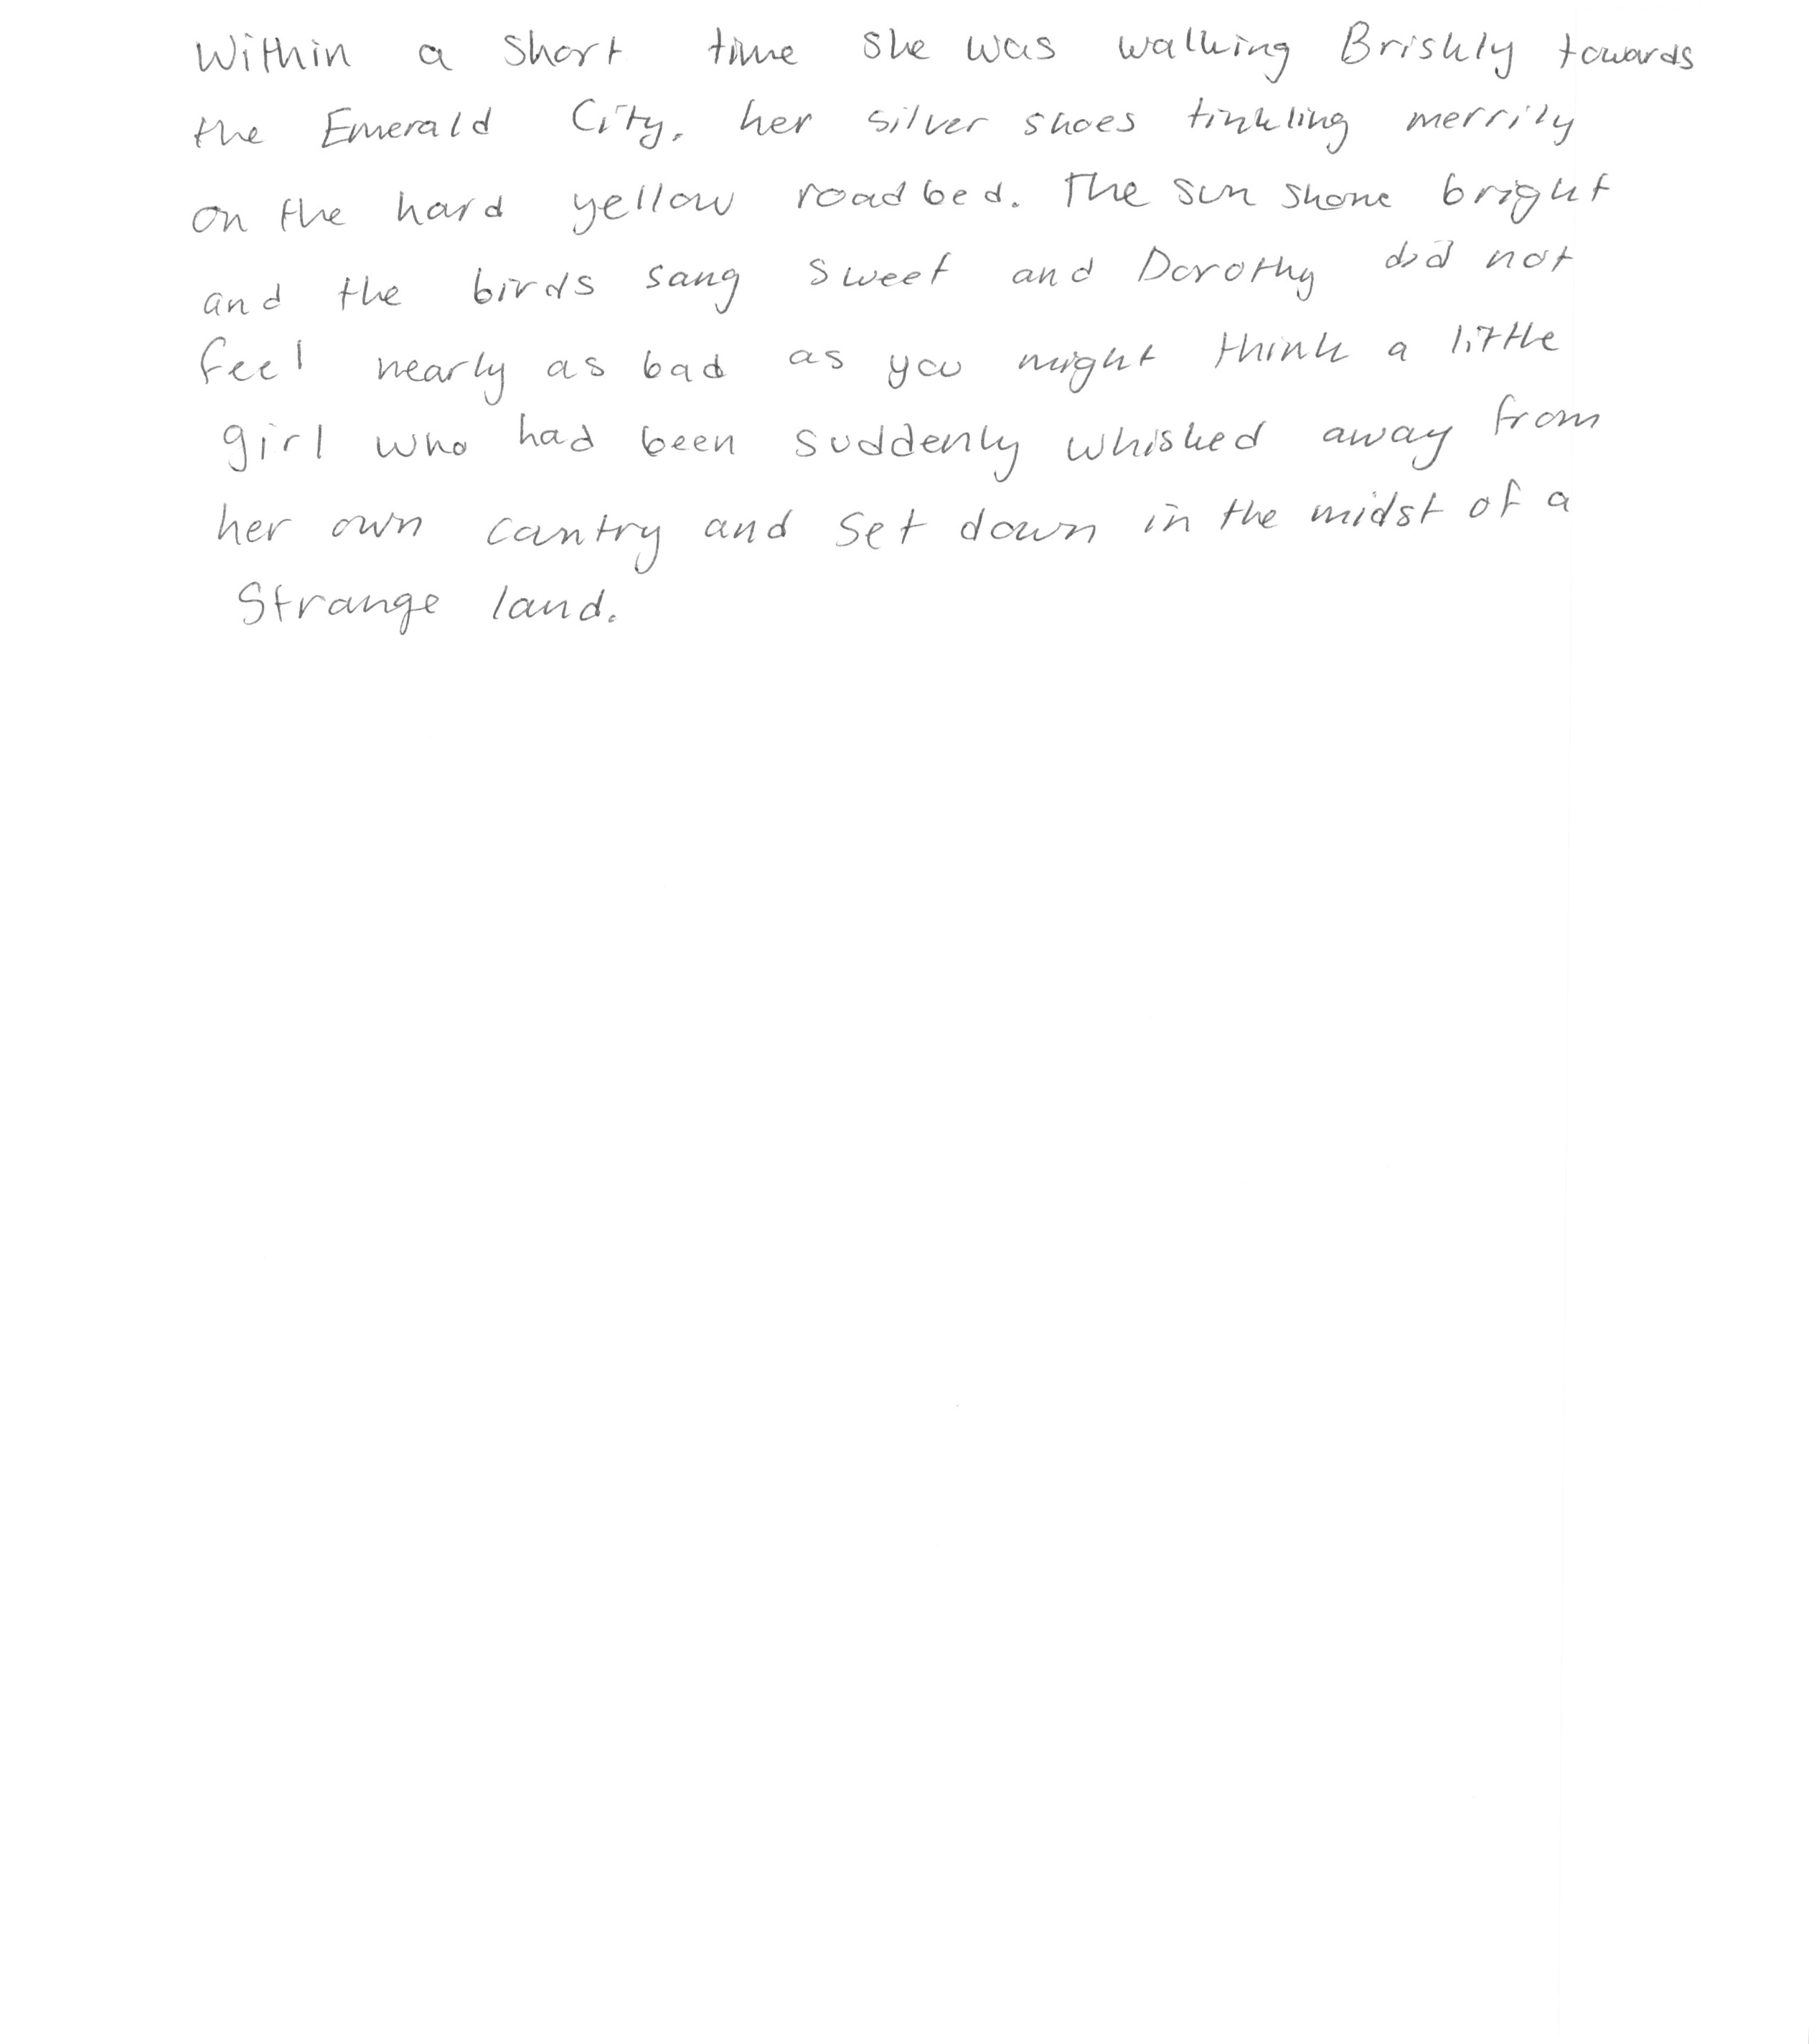 Within a short time she was walking Briskly towards
the Emerald City, her silver shoes tinkling merrily
on the hard yellow roadbed. The sun shone bright
and the birds sang sweet and Dorothy did not
feel nearly as bad as you might think a little
girl who had been suddenly whisked away from
her own country and set down in the midst of a
strange land.